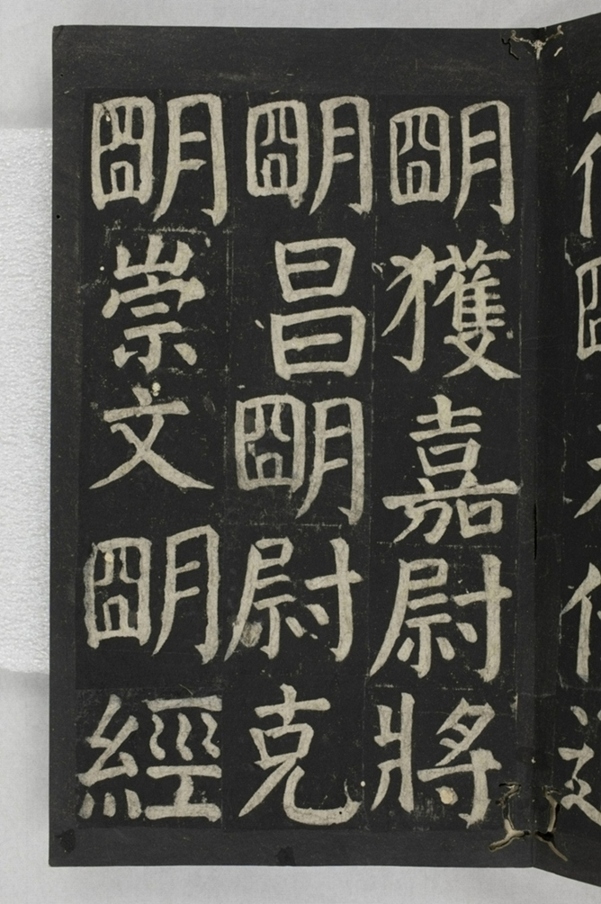 朙獲嘉尉將
朙昌朙尉克
朙崇文朙經